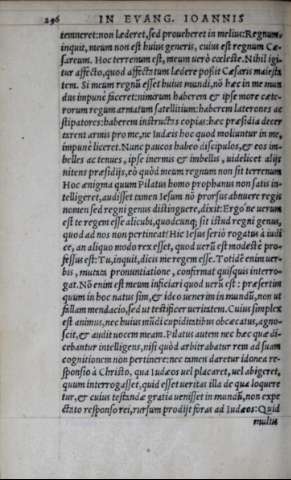 296 IN EVANG. IOANNIS
temneret: non læderet, sed proueheret in melius: Regnum,
inquit, meum non est huius generis, cuius est regnum Cæ-
sareum. Hoc terrenum est, meum uerò cœleste. Nihil igi-
tur affecto, quod affectatum lædere possit Cæsaris maiesta
tem. Si meum regnū esset huius mundi, nō hæc in me mun
dus impune faceret: nimirum haberem & ipse more cæte-
rorum regum armatum satellitium: haberem latrones ac
stipatores: haberem instructas copias: hæc præsidia decer
tarent armis pro me, ne Iudæis hoc quod moliuntur in me,
impunè liceret. Nunc paucos habeo discipulos, & eos im-
belles ac tenues, ipse inermis & imbellis, uidelicet alijs
nitens præsidijs, eò quòd meum regnum non sit terrenum
Hoc ænigma quum Pilatus homo prophanus non satis in-
telligeret, audisset tamen Iesum nō prorsus abnuere regis
nomen sed regni genus distinguere, dixit: Ergo ne uerum
est te regem esse alicubi, quodcunq; sit istud regni genus,
quod ad nos non pertineat? Hic Iesus seriò rogatus à iudi
ce, an aliquo modo rex esset, quod uerū est modestè pro-
fessus est: Tu, inquit, dicis me regem esse. Totidē enim uer-
bis, mutata pronuntiatione, confirmat quisquis interro-
gat. Nō enim est meum inficiari quod uerū est: præsertim
quum in hoc natus sim, & ideo uenerim in mundū, non ut
fallam mendacio, sed ut testificer ueritatem. Cuius simplex
est animus, nec huius mūdi cupiditatibus obcæcatus, agno-
scit, & audit uocem meam. Pilatus autem nec hæc quæ di-
cebantur intelligens, nisi quòd arbitrabatur rem ad suam
cognitionem non pertinere: nec tamen daretur idonea re-
sponsio à Christo, qua Iudæos uel placaret, uel abigeret,
quum interrogasset, quid esset ueritas illa de qua loquere
tur, & cuius testandæ gratia uenisset in mundū, non expe
ctato responso rei, rursum prodijt foras ad Iudæos: Quid
multis